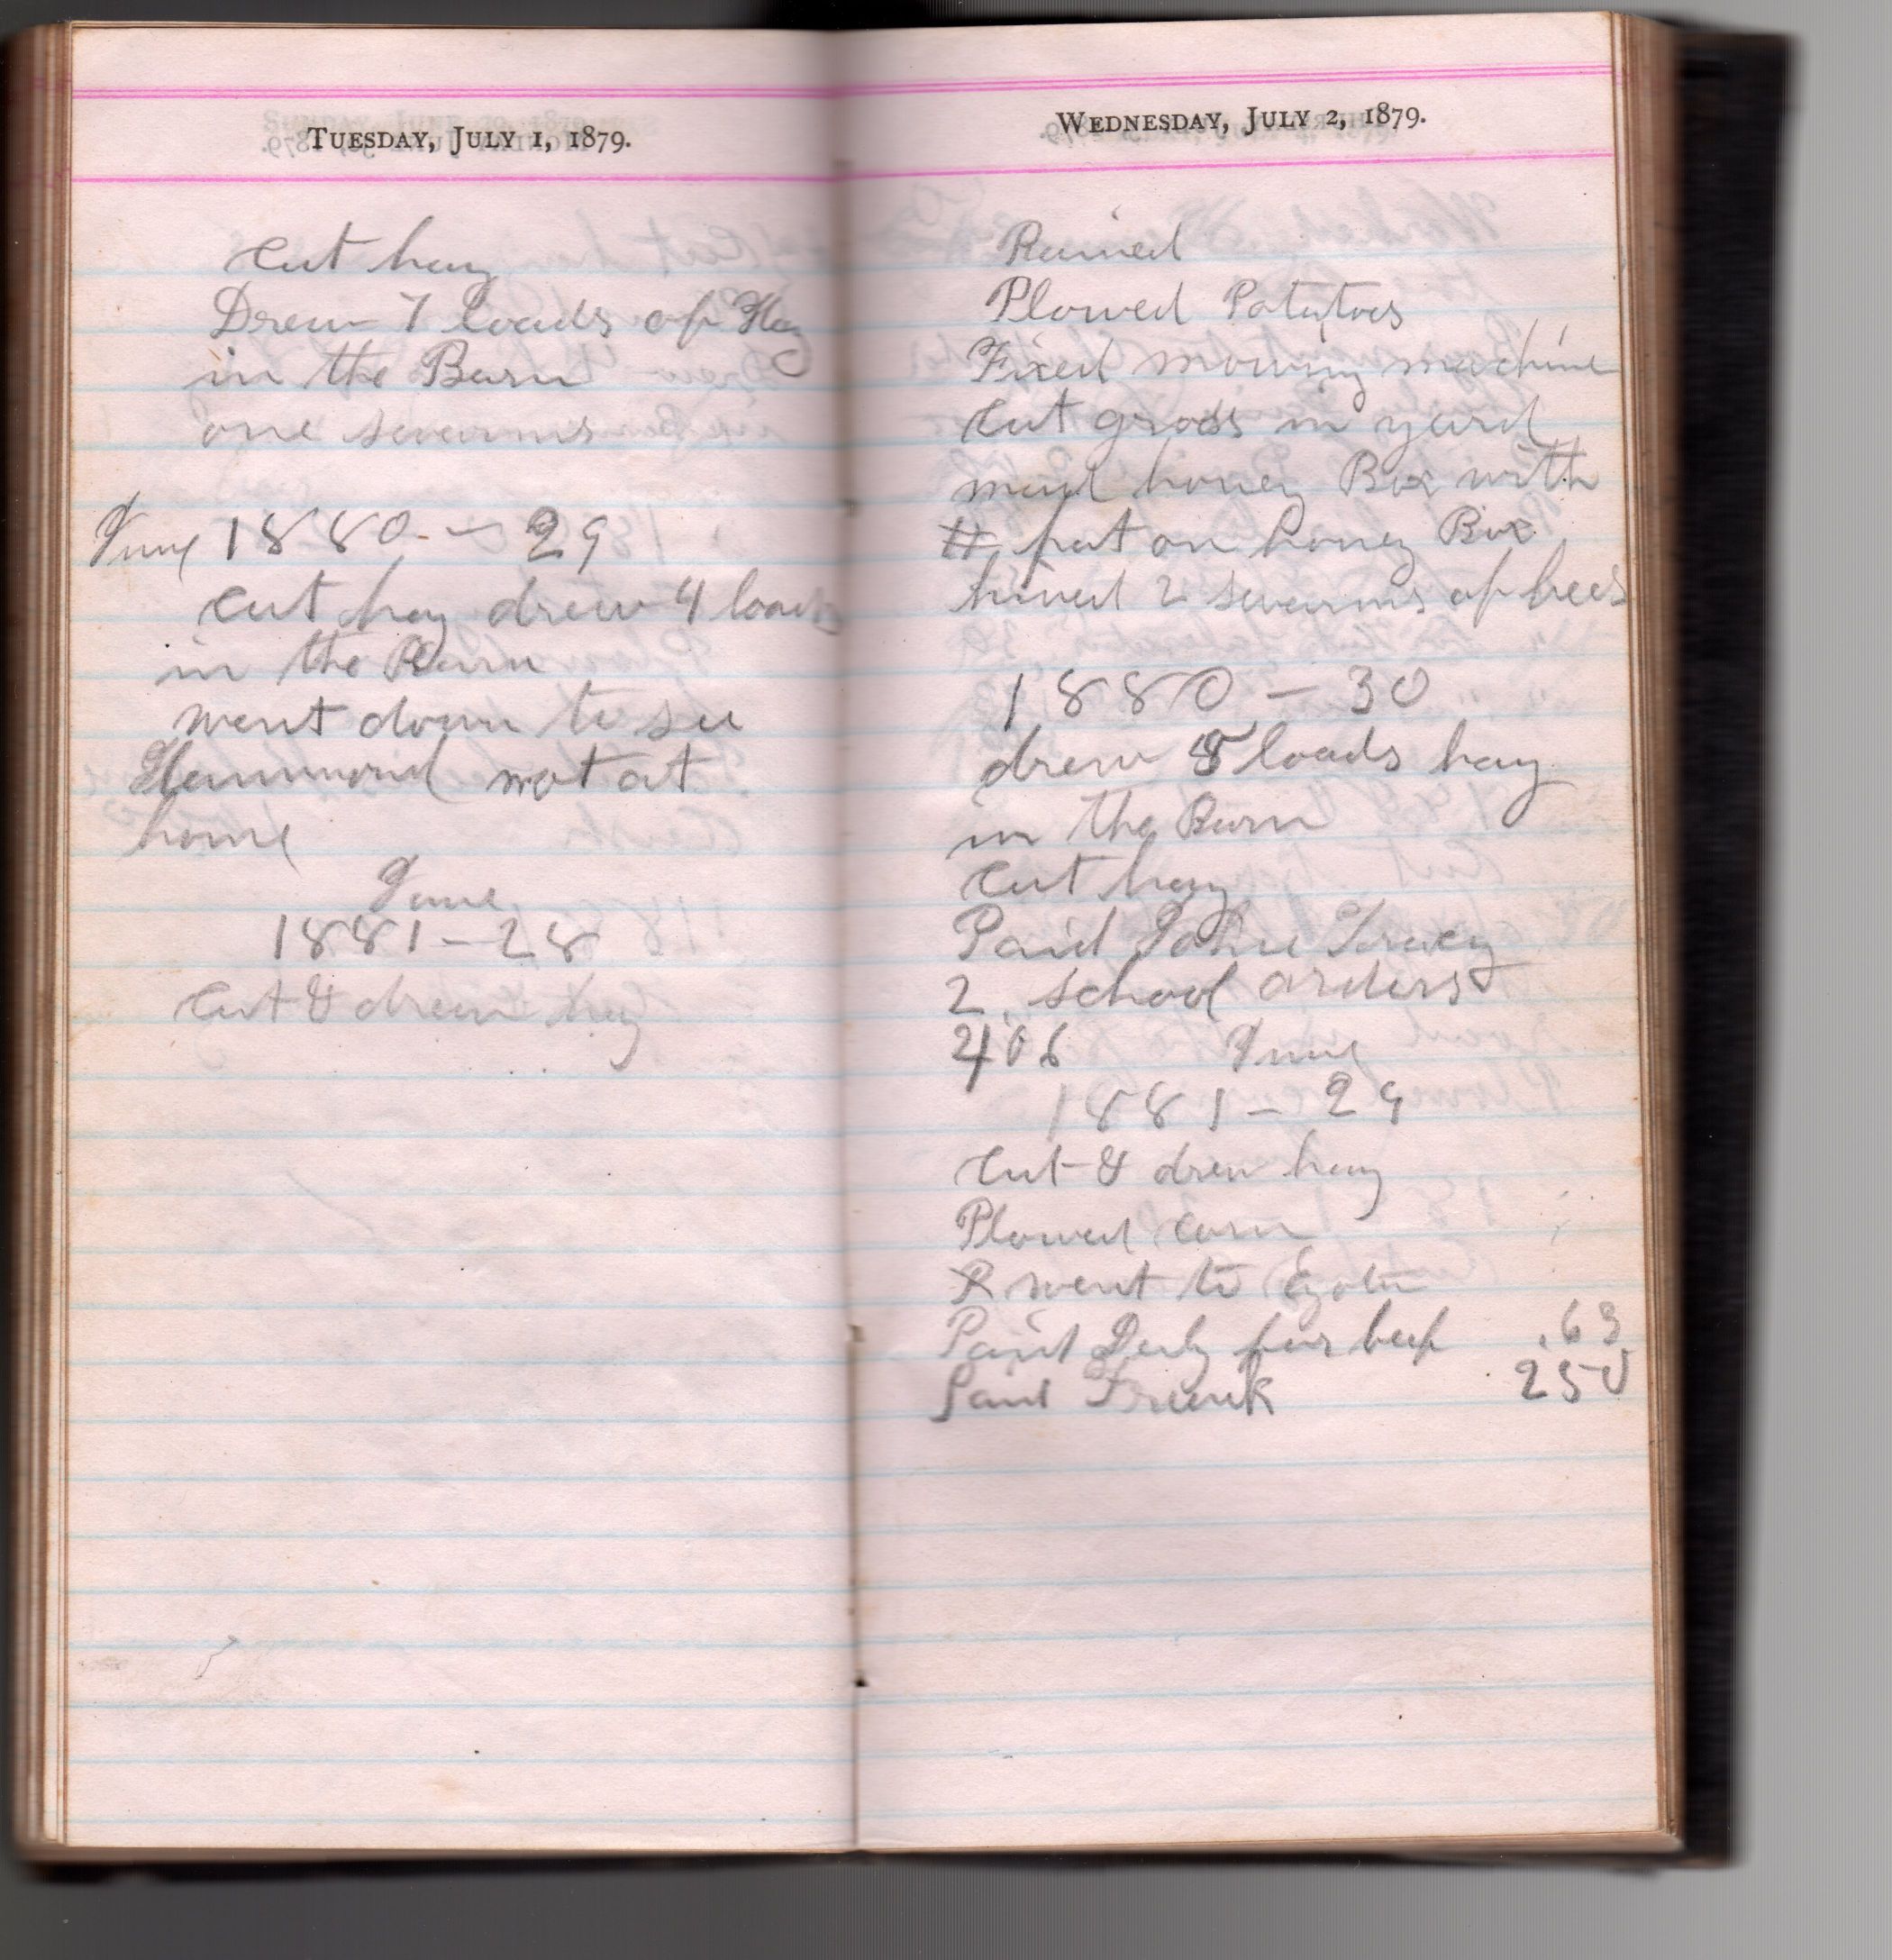 TUESDAY, JULY 1, 1879.
Cut hay
Drew 7 loads of Hay
in the Barn
one swarms
June 1880 - 29
Cut hay drew 4 loads
in the Barn
went down to see
Hammond not at
home
June
1881 - 28
Cut & drew hay
WEDNESDAY, JULY 2, 1879.
Rained
Plowed Potatoes
Fixed mowing machine
Cut grass in yard
mad honey Box with
put on honey Box
hived 2 swarms of bees
1880 - 30
drew 5 loads hay
in the Barn
Cut hay
Paid John Tracy
2 school orders
406 June
1881 - 29
Cut & drew hay
Plowed corn
went to
Paid for beef .63
Paid Frank 250